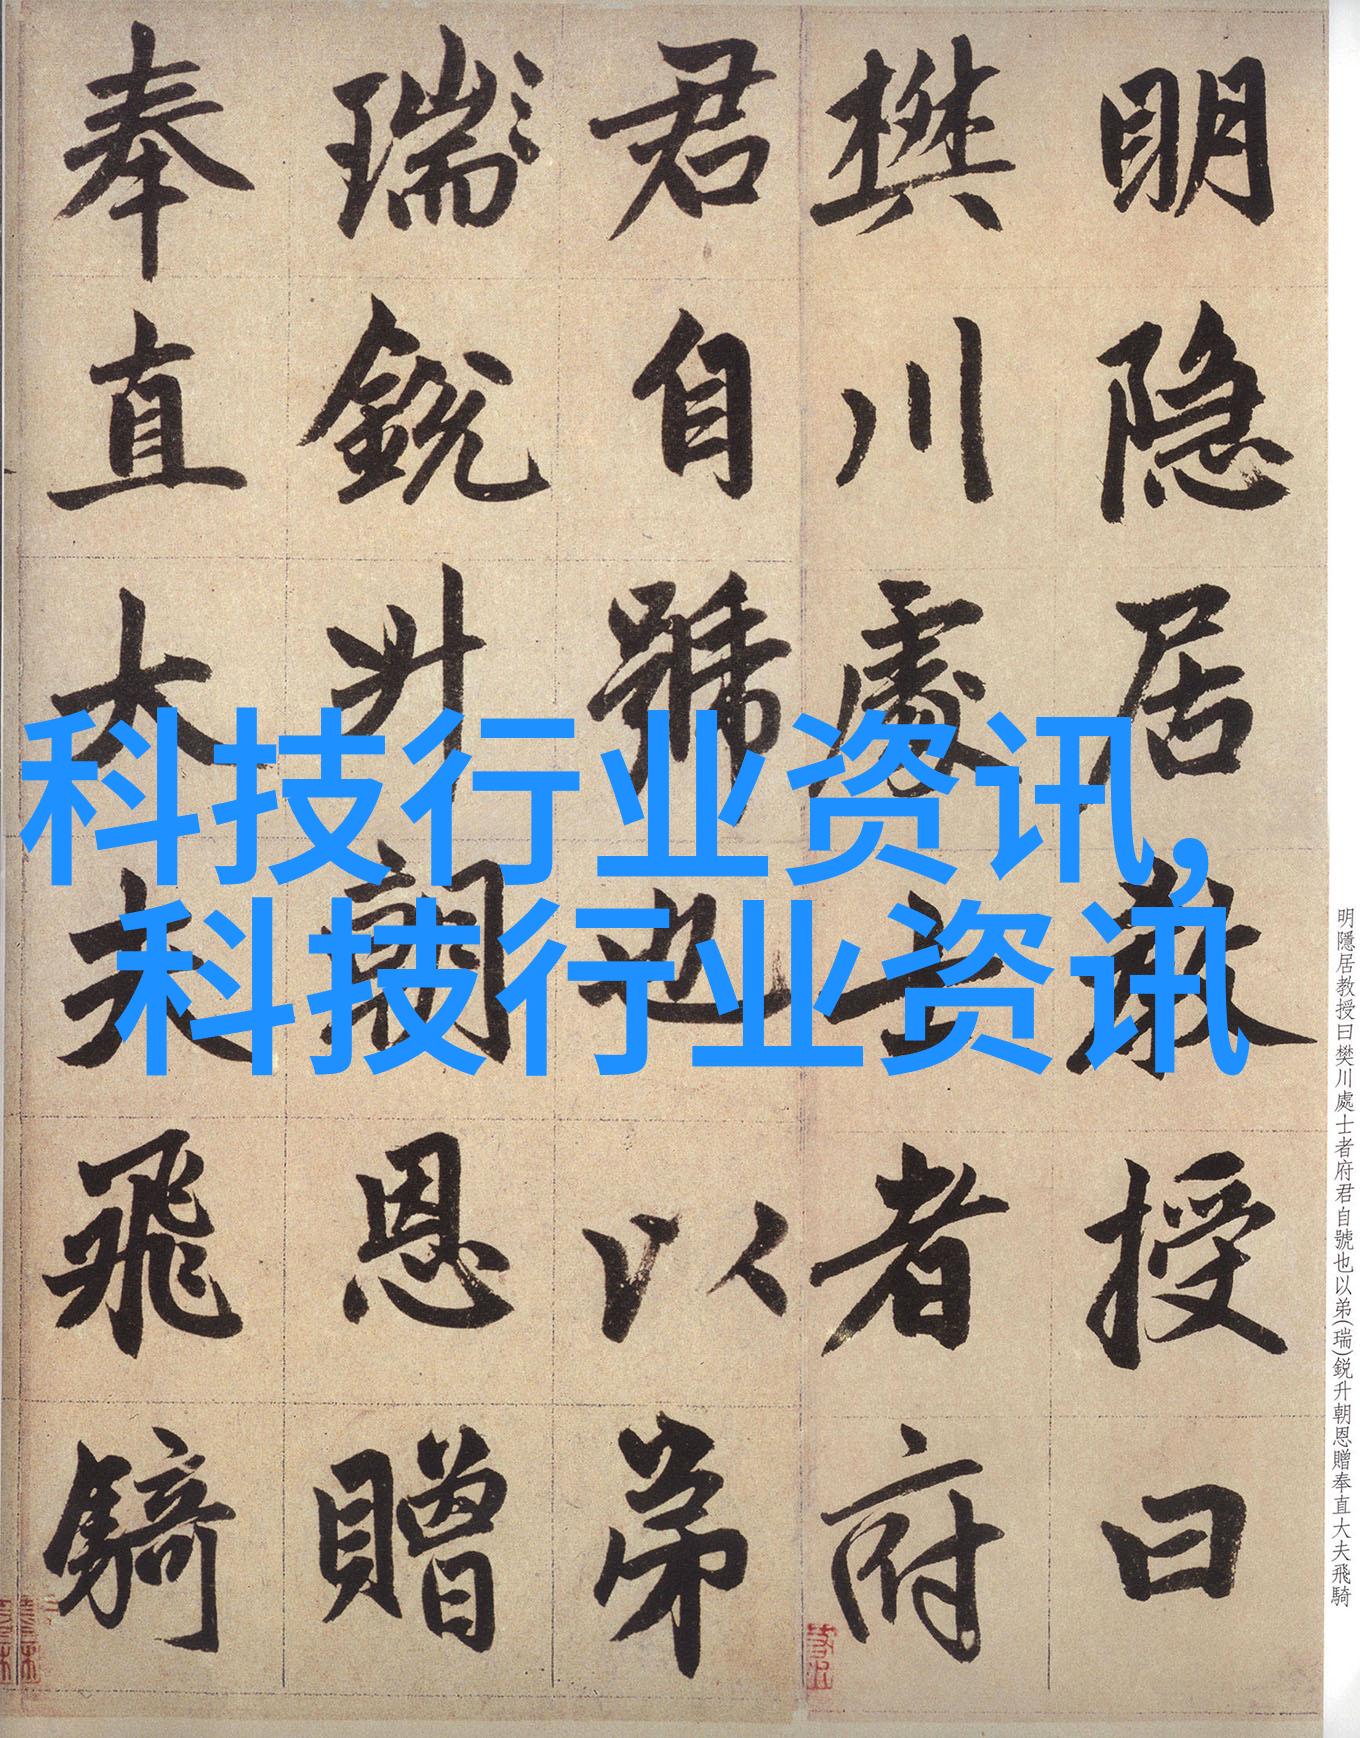 明隐居教授曰
樊川處士者府
君自號也以弟
瑞銳升朝恩贈
奉直大夫飛騎
科技行业资讯,
科技行业资讯
明隱居教授曰樊川處士者府君自號也以弟(瑞)鋭升朝恩贈奉直大夫飛騎